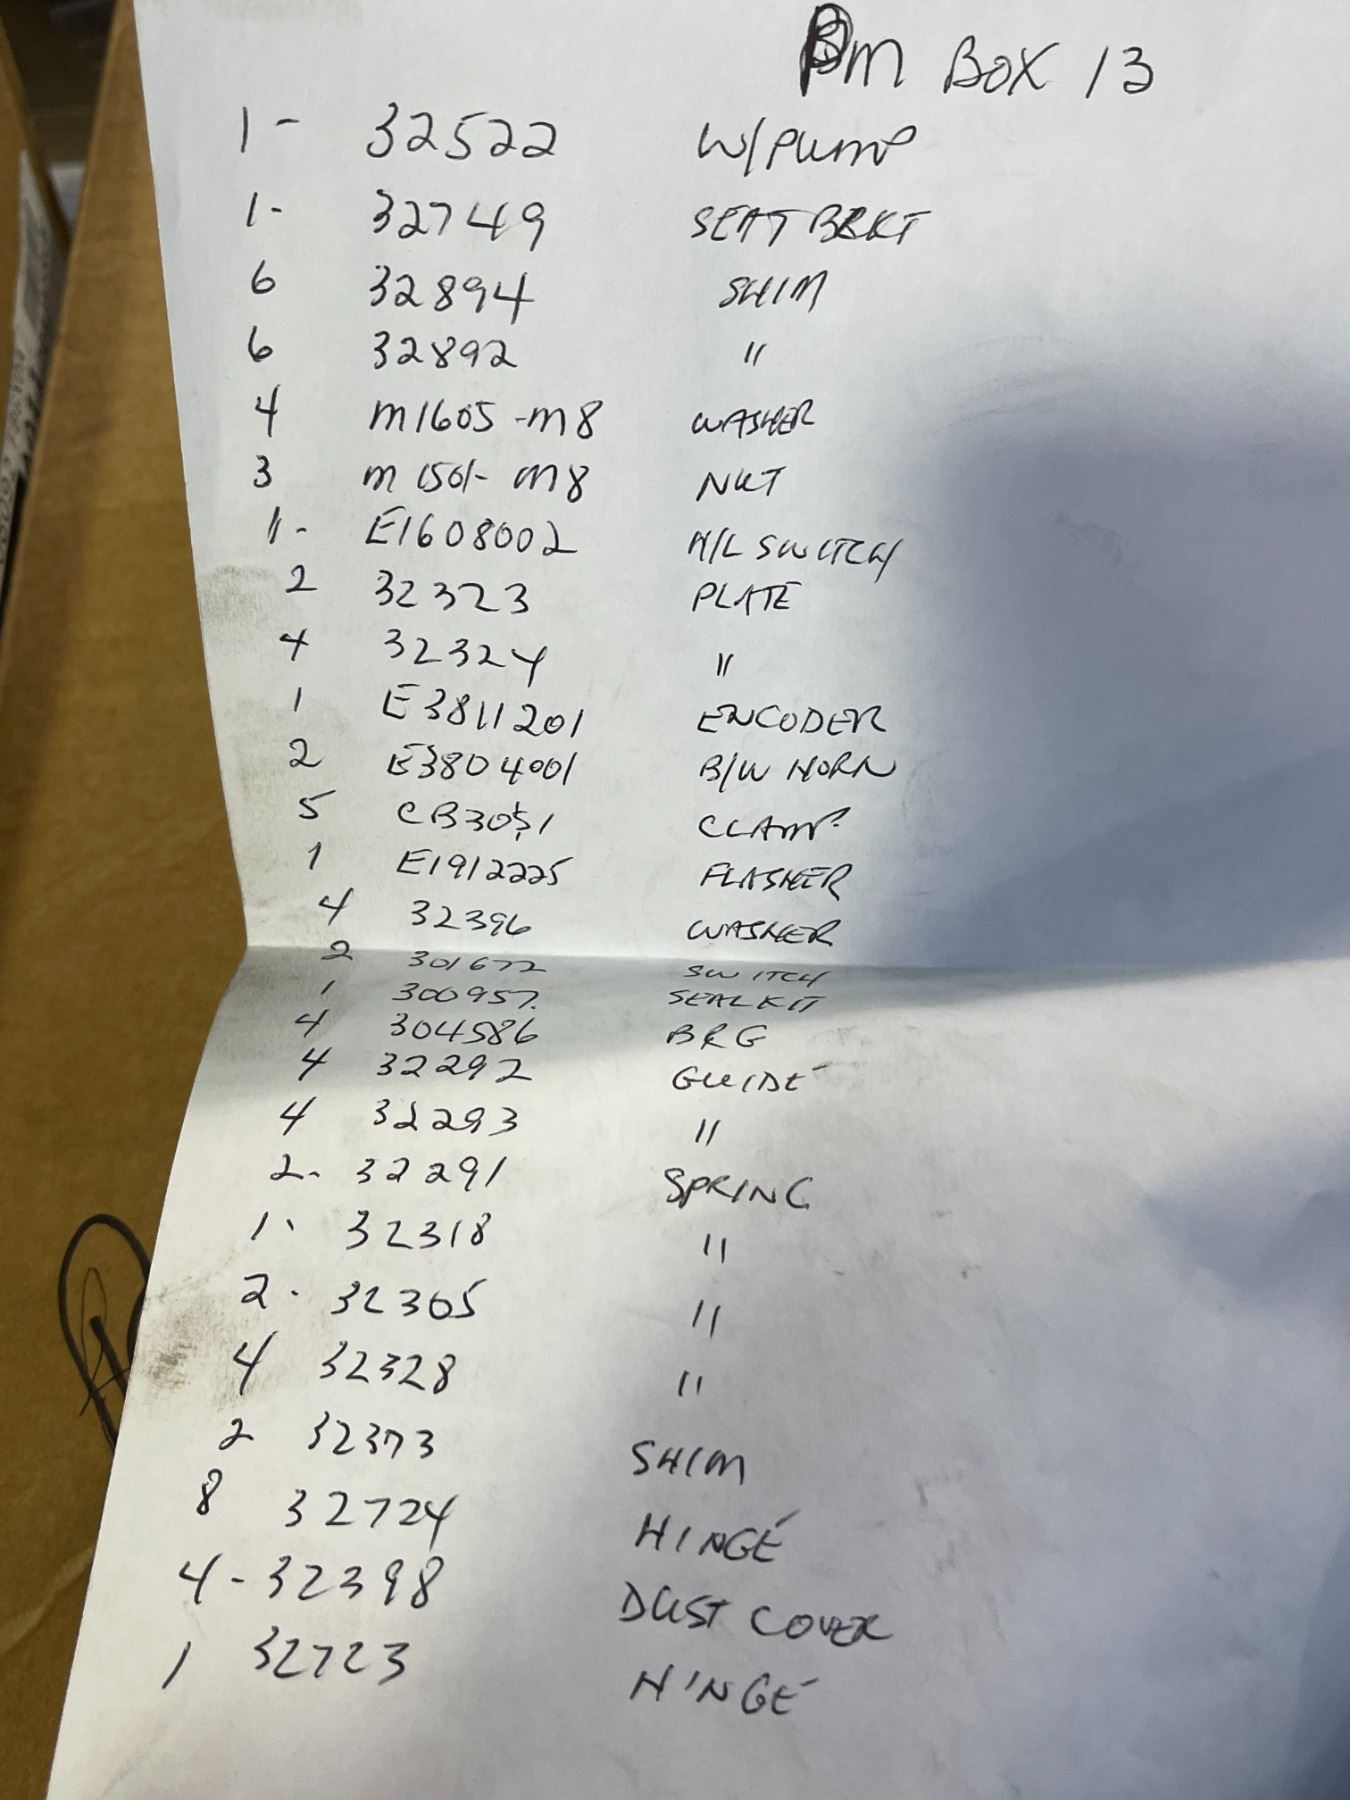 BM BOX 13
1- 32522 W/PUMP
1- 32749 SEAT BRKT
6 32894 SHIM
6 32892 "
4 M1605-M8 WASHER
3 M1501-M8 NUT
1- E1608002 H/L SWITCH
2 32323 PLATE
4 32324 "
1 E3811201 ENCODER
2 E3804001 B/W HORN
5 CB3051 CLAMP
1 E1912225 FLASHER
4 32396 WASHER
2 301672 SWITCH
1 300957. SEAL KIT
4 304586 BRG
4 32292 GUIDE
4 32293 "
2- 32291 SPRING
1- 32318 "
2- 32305 "
4 32328 "
2 32373 SHIM
8 32724 HINGE
4-32398 DUST COVER
1 32723 HINGE